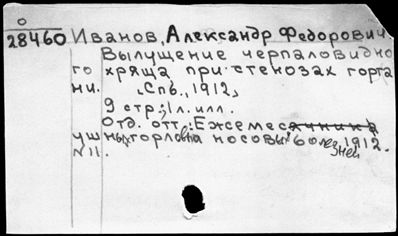 О
28460 Иванов, Александр Федорович.
Вылущение черпаловидно
го хряща при стенозах горта
ни. Спб., 1912,
9 стр.; 1 л. илл.
Отд. отт.: Ежемесячника
ушных горловых носовых болезней 1912.
N 11.